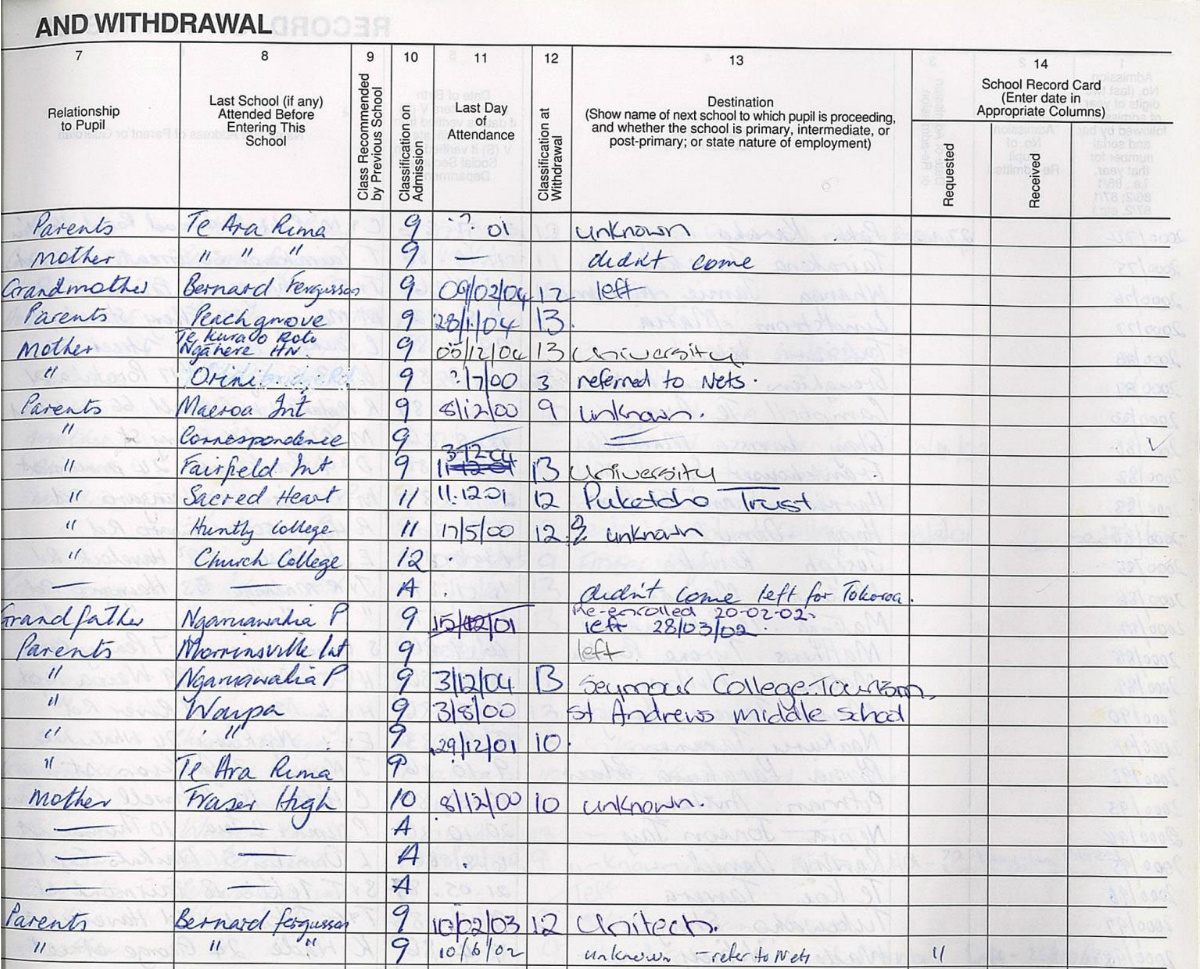 AND WITHDRAWAL
7 8 9 10 11 12 13 14
Relationship to Pupil
Last School (if any) Attended Before Entering This School
Class Recommended by Previous School
Classification on Admission
Last Day of Attendance
Classification at Withdrawal
Destination
(Show name of next school to which pupil is proceeding, and whether the school is primary, intermediate, or post-primary; or state nature of employment)
School Record Card
(Enter date in Appropriate Columns)
Requested
Received
Parents Te Ara Rima 9 ? 01 unknown
Mother " " " 9 — didn't come
Grandmother Bernard Fergusson 9 09/02/04 12 left
Parents Peachgrove 9 28/1/04 13
Te Kura o Roto
Mother Ngahere HN. 9 05/12/04 13 University
" Orini 9 ?/7/00 3 referred to Nets.
Parents Maeroa Int 9 8/12/00 9 unknown.
" Correspondence 9
3-12-04
" Fairfield Int 9 13 University
" Sacred Heart 11 11.12.01 12 Trust
" Huntly College 11 17/5/00 12 ? unknown
" Church College 12
— — A didn't come left for Tokoroa.
Re-enrolled 20-02-02.
Grandfather Ngaruawahia P 9 left 28/03/02.
Parents Morrinsville Int 9 left.
" Ngaruawahia P 9 3/12/04 13 Seymour College-Tourism.
" Waipa 9 3/8/00 St Andrews middle school
" " 9 29/12/01 10.
" Te Ara Rima 9
Mother Fraser High 10 8/12/00 10 unknown.
— — A
— — A
— — A
Parents Bernard Fergusson 9 10/02/03 12 Unitech.
" " " 9 10/6/02 unknown - refer to Nets "